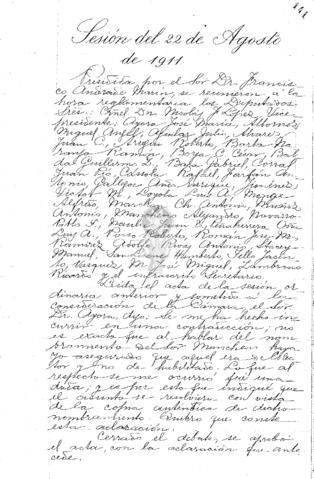 Sesión del 22 de Agosto
de 1911
Presidida por el Sor Dr. Francis-
co Andrade Marín, se reunieron a la
hora reglamentaria los Diputados
Sres: Crnel. Dn. Nicolás F. López, Vice-
presidente; Ayora José María, Albornoz
Miguel Angel, Aguilar Julio, Alvarez
Juan C., Arregui Roberto, Barba Na-
ranjo Ramón, Borja C. César, Bal-
da Guillermo L., Baca Gabriel, Corral
Juan Pío, Cassola Rafael, Farfán An-
tonio, Gallegos Anda
Víctor M., Loyola Saúl A., Monge
Alfredo, Ch. Antonio, Muñoz
Antonio, Alejandro, Navarro
Pablo F.,
Luis A., Pozo Roberto, Román José M.,
Ramírez Adolfo, Rivas Antonio, Stacey
Manuel, Humberto, Tello Jacin-
to, Vásquez Dn. José Miguel, Zambrano
Ricardo y el infrascrito Secretario.
Leída el acta de la sesión or-
dinaria anterior y sometida a la
consideración de la Cámara el Sor
Dr. Ayora dijo: Se me ha hecho in-
currir en una contradicción; no
es exacto que al hablar del nom-
bramento del Sor Moncheu haya
yo asegurado que aquel era de Elec-
tor y no de habilitado. Lo que al
respecto se me ocurrió fue una
duda; y es por esto que indiqué que
el asunto se resolviera con vista
de la copia auténtica de dicho
nombramiento. Quiero que conste
esta aclaración.
Cerrado el debate, se aprobó
el acta, con la aclaración que ante-
cede.